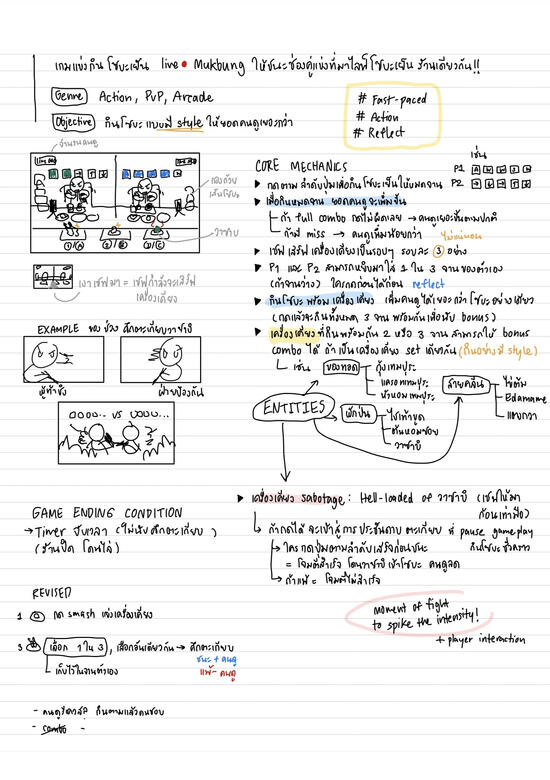 เกมแข่งกินโซบะเย็น live Mukbung ให้ชนะช่องคู่แข่งที่มาไลฟ์โซบะเย็น ร้านเดียวกัน!!
Genre Action, PvP, Arcade
Objective กินโซบะ แบบมี style ให้ยอดคนดูเยอะกว่า
# Fast-paced
# Action
# Reflect
จำนวนคนดู
แสดงด้วยเส้นโซบะ
วาซาบิ
เงาเชฟมา = เชฟกำลังจะเสิร์ฟเครื่องเคียง
EXAMPLE ของช่วง ศึกตะเกียบวาซาบิ
ผู้ท้าชิง
ฝ่ายป้องกัน
OOOO... VS OOOO...
CORE MECHANICS
เช่น
P1
P2
▶ กดตาม ลำดับปุ่มเพื่อกินโซบะเย็นให้หมดจาน
▶ เมื่อกินหมดจาน ยอดคนดูจะเพิ่มขึ้น
ถ้า full combo กดไม่ผิดเลย → คนดูเยอะขึ้นตามปกติ
ถ้ามี miss → คนดูเพิ่มน้อยกว่า ไม่แน่นอน
▶ เชฟ เสิร์ฟ เครื่องเคียงเป็นรอบๆ รอบละ 3 อย่าง
▶ P1 และ P2 สามารถหยิบมาใส่ 1 ใน 3 จานของตัวเอง
(ถ้าจานว่าง) ใครกดก่อนได้ก่อน reflect
▶ กินโซบะ พร้อมเครื่องเคียง เพิ่มคนดูได้เยอะกว่าโซบะอย่างเดียว
(กดแล้วจะกินทั้งหมด 3 จาน พร้อมกันเพื่อนับ bonus)
▶ เครื่องเคียงที่กินพร้อมกัน 2 หรือ 3 จานสามารถให้ bonus
combo ได้ ถ้าเป็นเครื่องเคียง set เดียวกัน (กินอย่างมี style)
เช่น
ของทอด
กุ้งเทมปุระ
แครอทเทมปุระ
หัวหอมเทมปุระ
สายคลีน
ไข่ต้ม
Edamame
แตงกวา
ENTITIES
ผักป่น
ไชเท้าขูด
ต้นหอมซอย
วาซาบิ
▶ เครื่องเคียง sabotage : Hell-loaded of วาซาบิ (เชฟให้มาก้อนเท่ามือ)
ถ้ากดได้ จะเข้าสู่การประชันดาบตะเกียบ ที่ pause gameplay กินโซบะชั่วคราว
ใครกดปุ่มตามลำดับเสร็จก่อนชนะ
= โจมตีสำเร็จ โดนวาซาบิเข้าโซบะ คนดูลด
ถ้าแพ้ = โจมตีไม่สำเร็จ
GAME ENDING CONDITION
→ Timer จับเวลา (ไม่นับศึกตะเกียบ)
(ร้านปิด โดนไล่)
REVISED
1 กด smash แย่งเครื่องเคียง
3 เลือก 1 ใน 3, เลือกอันเดียวกัน → ศึกตะเกียบ
ชนะ + คนดู
แพ้ - คนดู
เก็บไว้ในจานตัวเอง
moment of fight
to spike the intensity!
+ player interaction
- combo -